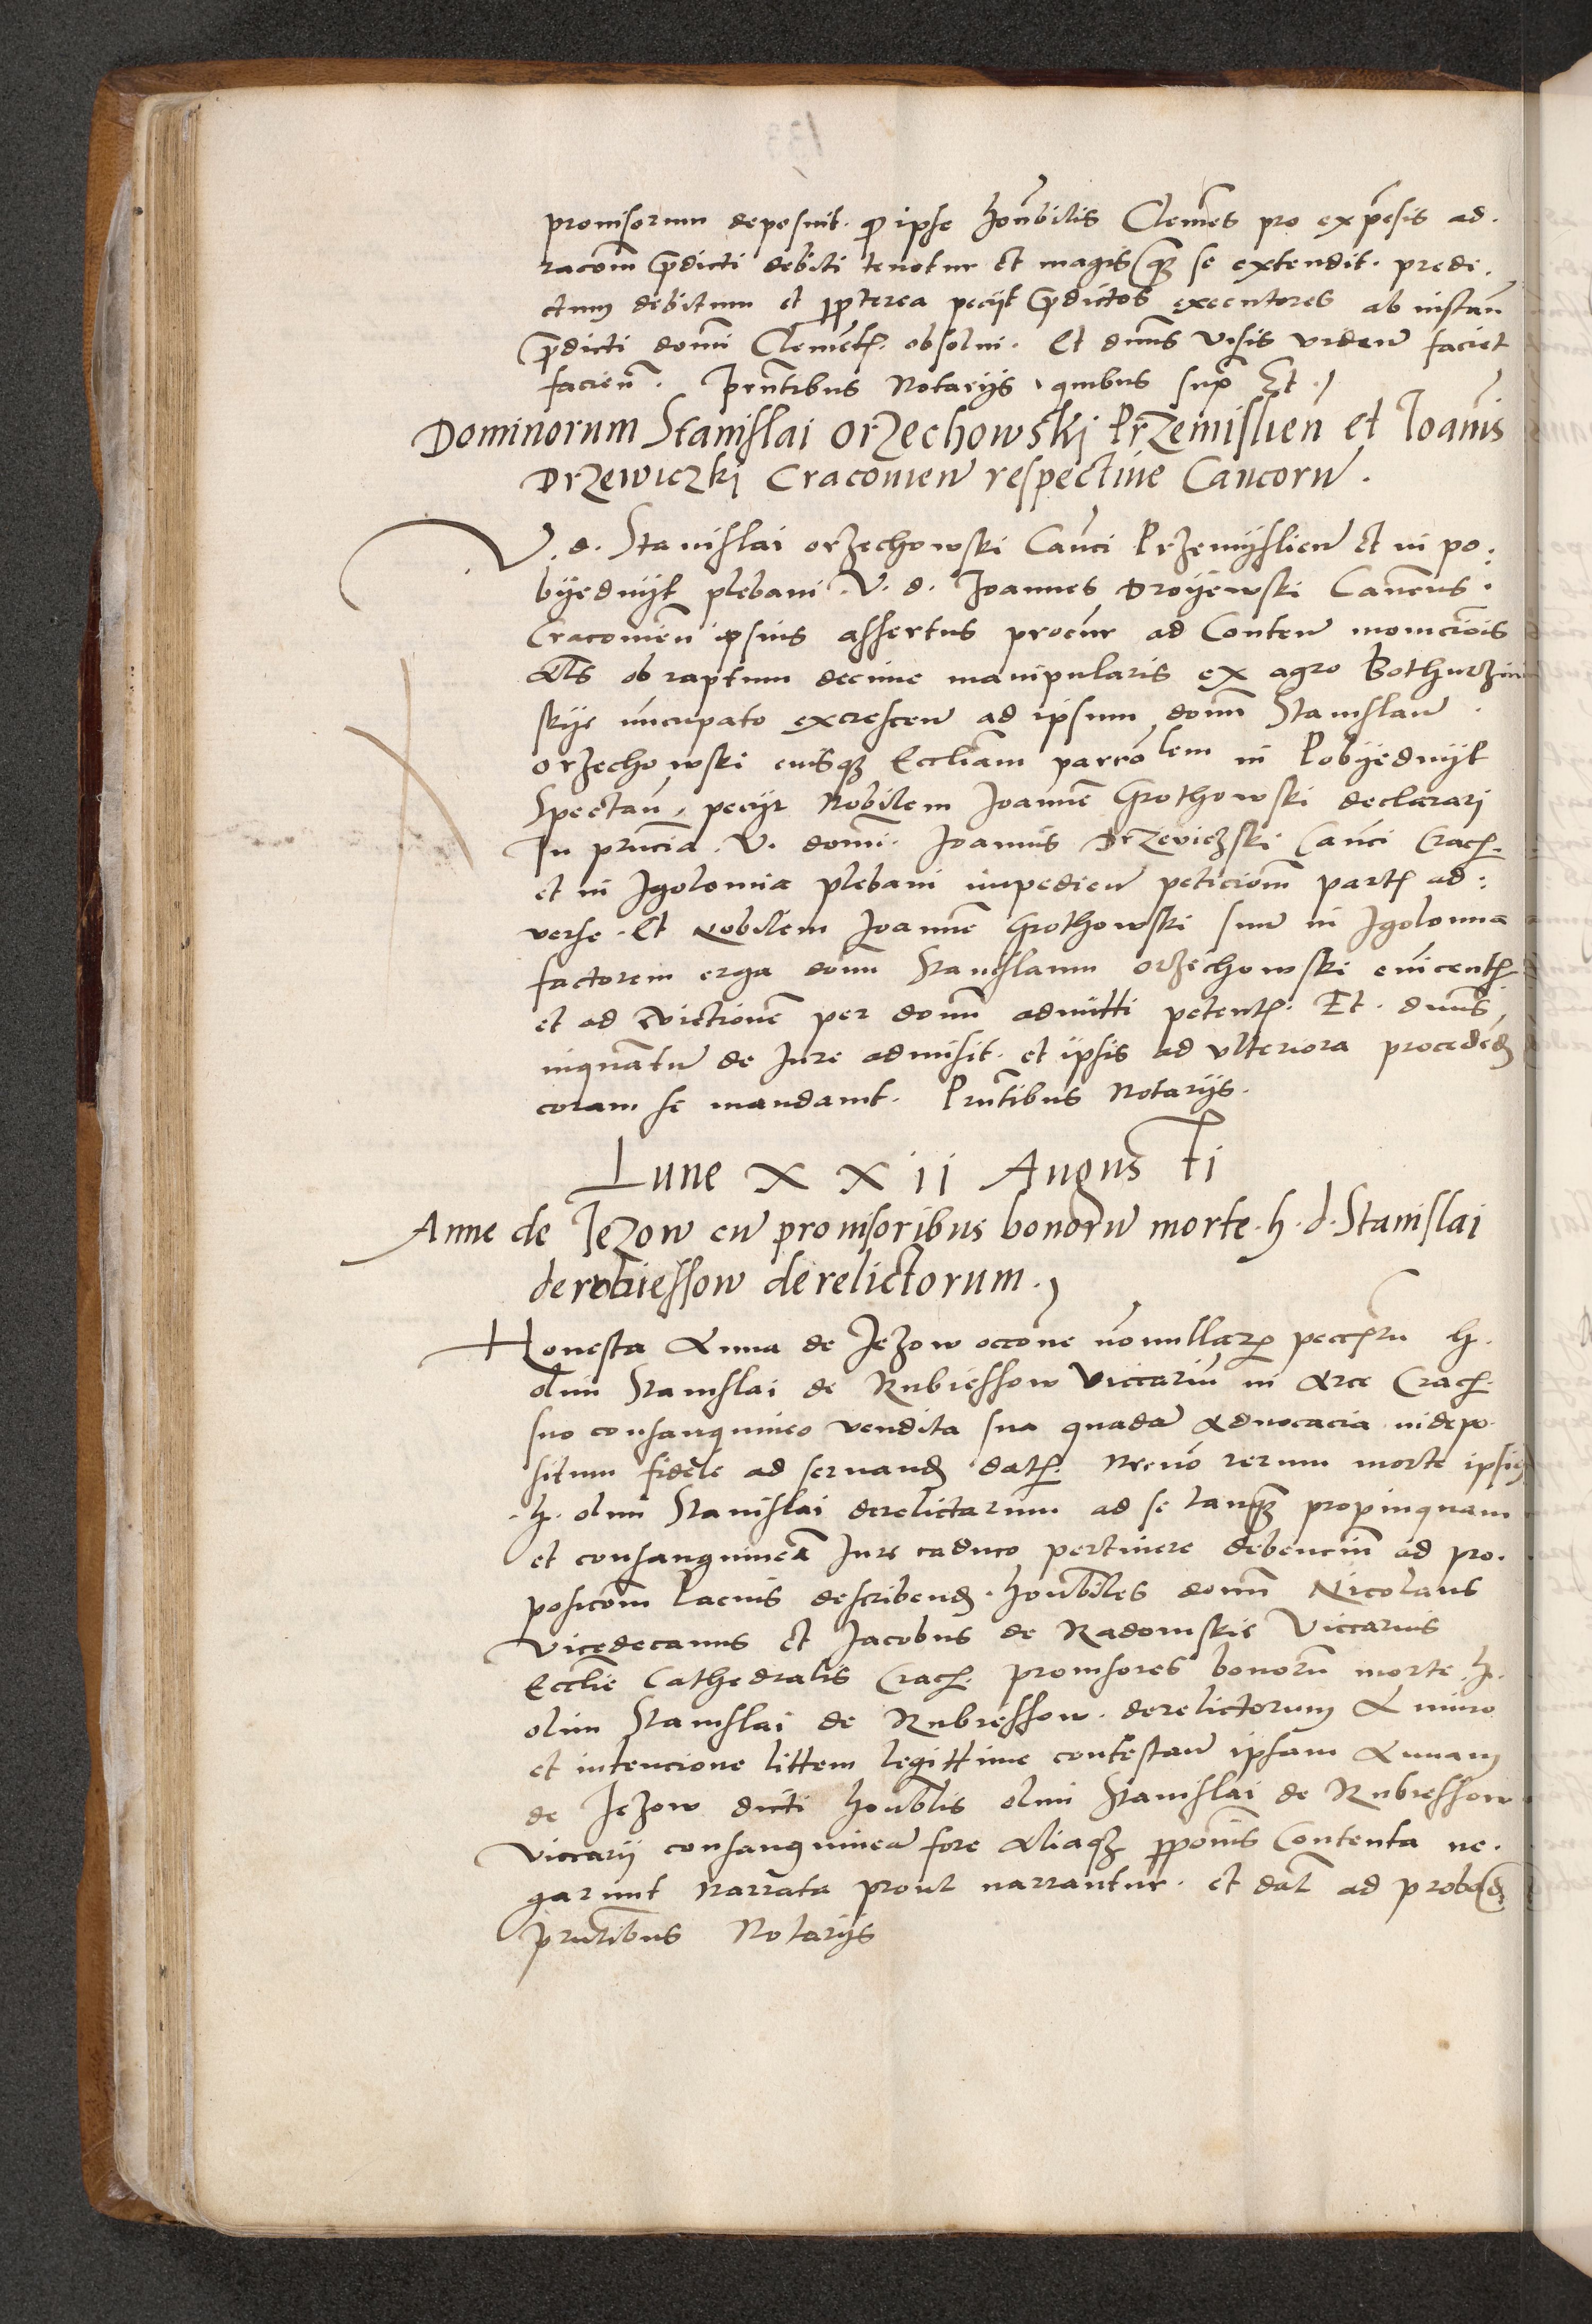 provisorum deposuit. qp ipse honbilis Clemēs pro expēsis ad.
racom p̄dicti debiti tenetur et magis q̄ȝ se extendit. prede.
ctum debitum et p̱pterea peciit p̄dictos executores ab instan̄
p̄dicti domī Clementꝭ. absolvi. Et dnūs visis viden̄ faciet
facien̄. Prn̄tibus Notarijs quibus supra Et.
Dominorum Stanislai orzechowski Przemislien̄ et Joanīs
Drzewiczki Cracovien̄ respective Can̄corū.
V. d. Stanislai orzechowski Canci Przemyslien̄ et in po:
byednyk plebani. V. d. Joannes Droyewski Canc̄us.
Cracovien̄ ipsius assertus procūr ad Conten̄ monic̄iōis
als̄ ob raptum decime manipularis ex agro
skye nūcupato excrescen̄ ad ipsum dom̄ Stanislaū
orzechowski eiusqȝ Eccl̄iam parrōlem in Pobyednyk
Spectan̄. peciit Nobilem Joannē Grothowski declarari
In prn̄cia. V. domī. Joannis Drzeviczski Canci Cracꝭ.
et in Igolomia plebani impedien̄ peticiom̄ partꝭ ad:
verse. Et Nobilem Joannē Grothowski suū in Igolomia
factorem erga dom̄ Stanislaum orzechowski evincentꝭ
et ad Evictionē per dom̄ admitti petentꝭ. Et. dnūs
inquātū de Jure admisit. et ipsis ad ulteriora procedēdꝭ
coram se mandavit. Prn̄tibus Notarijs.
Lune XXii Augusti
Anne de Jezow cū provisoribus bonorū morte. h. d. Stanislai
de rubiessow derelictorum.
Honesta Anna de Jezow occōne nōnullarꝝ pecc̄iarū h.
olim Stanislai de Rubiessow Viccariū in Arce Cracꝭ.
suo consanguineo vendita sua quadā Advocacia in depo
situm fidele ad servandꝭ datꝭ. Necnō rerum morte ipsiꝰ
.h. olim Stanislai derelictarum ad se tanqȝ propinquam
et consanguineā Jure caduco pertinere debenciū ad pro.
posicom̄ lacius describendꝭ. honbiles domī Nicolaus
Vicedecanus et Jacobus de Radomskie Viccarius
Eccl̄ie Cathedralis Cracꝭ. provisores bonorū morte .h.
olim Stanislai de Rubiessow. derelictorum Animo
et intencione littem legittime contestan̄ ipsam Annam
de Jezow dicti honb̄lis olim Stanislai de Rubressow
Viccarij consanguineā fore Aliaqȝ p̱ponīs Contenta ne.
garunt Narrata prout narrantur. et dat̄ ad probādꝭ
prn̄tibus Notarijs